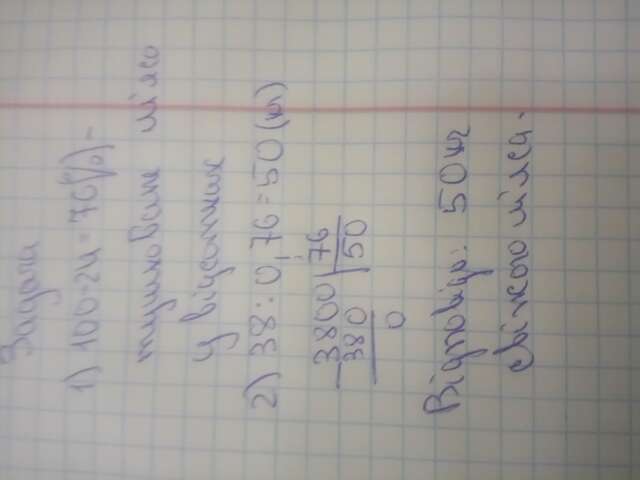 Задача
1) 100-24=76(%)-
тушковане м'ясо
у відсотках
2) 38:0,76=50(кг)
3800|76
380 |50
0
Відповідь: 50 кг
свіжого м'яса.